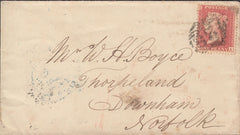 Mr W. H. Boyce
Thorpeland
Downham
Norfolk